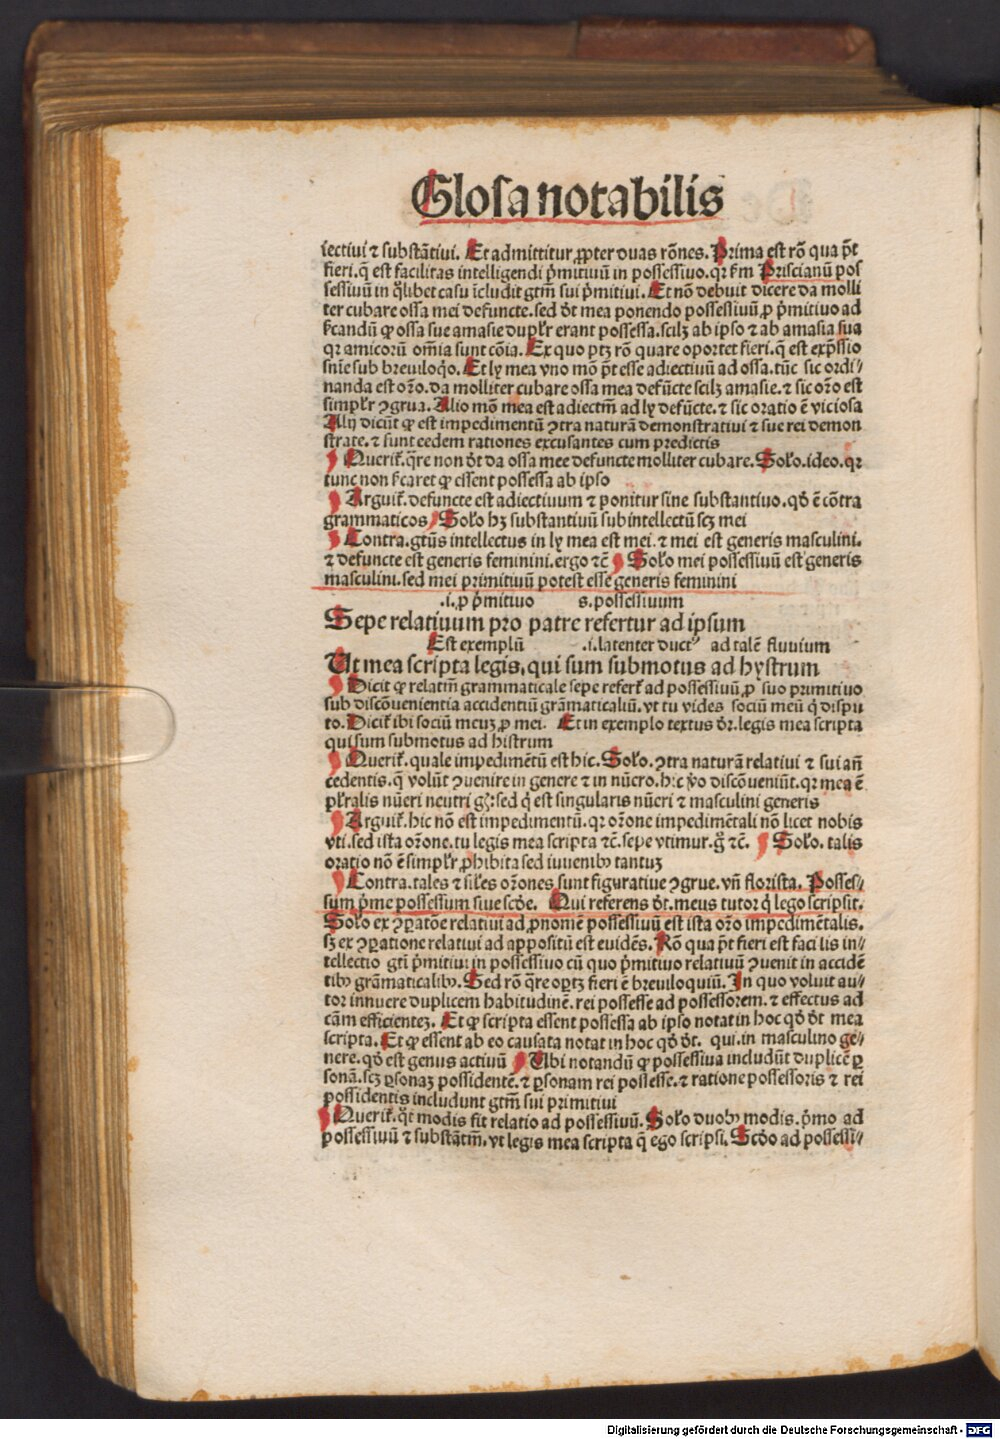 Glosa notabilis
iectiui ⁊ substãtiui. Et admittitur ꝓpter duas rõnes. Prima est rõ qua p̃t
fieri. q̃ est facilitas intelligendi p̃mitiuũ in possessiuo. qr ẜm Priscianũ pos
sessiuũ in q̃libet casu ĩcludit gtm̃ sui p̃mitiui. Et nõ debuit dicere da molli
ter cubare ossa mei defuncte. sed dt̃ mea ponendo possessiuũ ꝓ p̃mitiuo ad
candũ ꝙ ossa sue amasie duplr̃ erant possessa. scilꝫ ab ipso ⁊ ab amasia sua
qr amicorũ om̃ia sunt cõia. Ex quo ptꝫ rõ quare oportet fieri. q̃ est exp̃ssio
snĩe sub breuiloq̃o. Et ly mea vno mõ p̃t esse adiectiuũ ad ossa. tũc sic ordi⸗
nanda est or̃o. da molliter cubare ossa mea defũcte scilꝫ amasie. ⁊ sic or̃o est
simplr̃ ꝯgrua. Alio mõ mea est adiectm̃ ad ly defũcte. ⁊ sic oratio ẽ viciosa
Alij dicũt ꝙ est impedimentũ ꝯtra naturã demonstratiui ⁊ sue rei demon
strate. ⁊ sunt eedem rationes excusantes cum predictis
Querit̃. q̃re non dt̃ da ossa mee defuncte molliter cubare. Sol̃o. ideo. qr
tunc non caret ꝙ essent possessa ab ipso
Arguit̃. defuncte est adiectiuum ⁊ ponitur sine substantiuo. qđ ẽ cõtra
grammaticos Sol̃o hꝫ substantiuũ subintellectũ scꝫ mei
Contra. gtũs intellectus in ly mea est mei. ⁊ mei est generis masculini.
⁊ defuncte est generis feminini. ergo ⁊c̃ Sol̃o mei possessiuũ est generis
masculini. sed mei primitiuũ potest esse generis feminini
.i. ꝓ p̃mitiuo s. possessiuum
Sepe relatiuum pro patre refertur ad ipsum
Est exemplũ .i. latenter ductꝰ ad talẽ fluuium
Ut mea scripta legis, qui sum submotus ad hystrum
Dicit ꝙ relatm̃ grammaticale sepe refert̃ ad possessiuũ ꝓ suo primitiuo
sub discõuenientia accidentiũ grãmaticaliũ. vt tu vides sociũ meũ q̃ dispu
to. Dicit̃ ibi sociũ meuꝫ ꝓ mei. Et in exemplo textus dr̃. legis mea scripta
qui sum submotus ad histrum
Querit̃. quale impedimẽtũ est hic. Sol̃o. ꝯtra naturã relatiui ⁊ sui añ
cedentis. q̃ volũt ꝯuenire in genere ⁊ in nũero. hic ṽo discõueniũt. qr mea ẽ
pl̃ralis nũeri neutri gñ̃is: sed q̃ est singularis nũeri ⁊ masculini generis
Arguit̃. hic nõ est impedimentũ. qr or̃one impedimẽtali nõ licet nobis
vti. sed ista or̃one. tu legis mea scripta ⁊c̃. sepe vtimur. g̃ ⁊c̃. Sol̃o. talis
oratio nõ ẽ simplr̃ ꝓhibita sed iuuenibꝰ tantuꝫ
Contra. tales ⁊ sil̃es or̃ones sunt figuratiue ꝯgrue. vñ florista. Posses⸗
sum p̃me possessum siue scđe. Qui referens dt̃. meus tutor q̃ lego scripsit.
Sol̃o ex ꝯꝑatõe relatiui ad ꝓnomẽ possessiuũ est ista or̃o impedimẽtalis.
sꝫ ex ꝯꝑatione relatiui ad appositũ est euidẽs. Rõ qua p̃t fieri est facilis in⸗
tellectio gti p̃mitiui in possessiuo cũ quo p̃mitiuo relatiuũ ꝯuenit in accidẽ
tibꝰ grãmaticalibꝰ. Sed rõ q̃re oꝑtꝫ fieri ẽ breuiloquiũ. In quo voluit au⸗
tor innuere duplicem habitudinẽ. rei possesse ad possessorem. ⁊ effectus ad
cãm efficienteꝫ. Et ꝙ scripta essent possessa ab ipso notat in hoc qđ dt̃ mea
scripta. Et ꝙ essent ab eo causata notat in hoc qđ dt̃. qui. in masculino ge⸗
nere. qđ est genus actiuũ Ubi notandũ ꝙ possessiua includũt duplicẽ ꝑ
sonã. scꝫ ꝑsonaꝫ possidentẽ. ⁊ ꝑsonam rei possesse. ⁊ ratione possessoris ⁊ rei
possidentis includunt gtm̃ sui primitiui
Querit̃. q̃t modis fit relatio ad possessiuũ. Sol̃o duobꝰ modis. p̃mo ad
possessiuũ ⁊ substãtm̃. vt legis mea scripta q̃ ego scripsi. Scđo ad possessi⸗
Digitalisierung gefördert durch die Deutsche Forschungsgemeinschaft - DFG